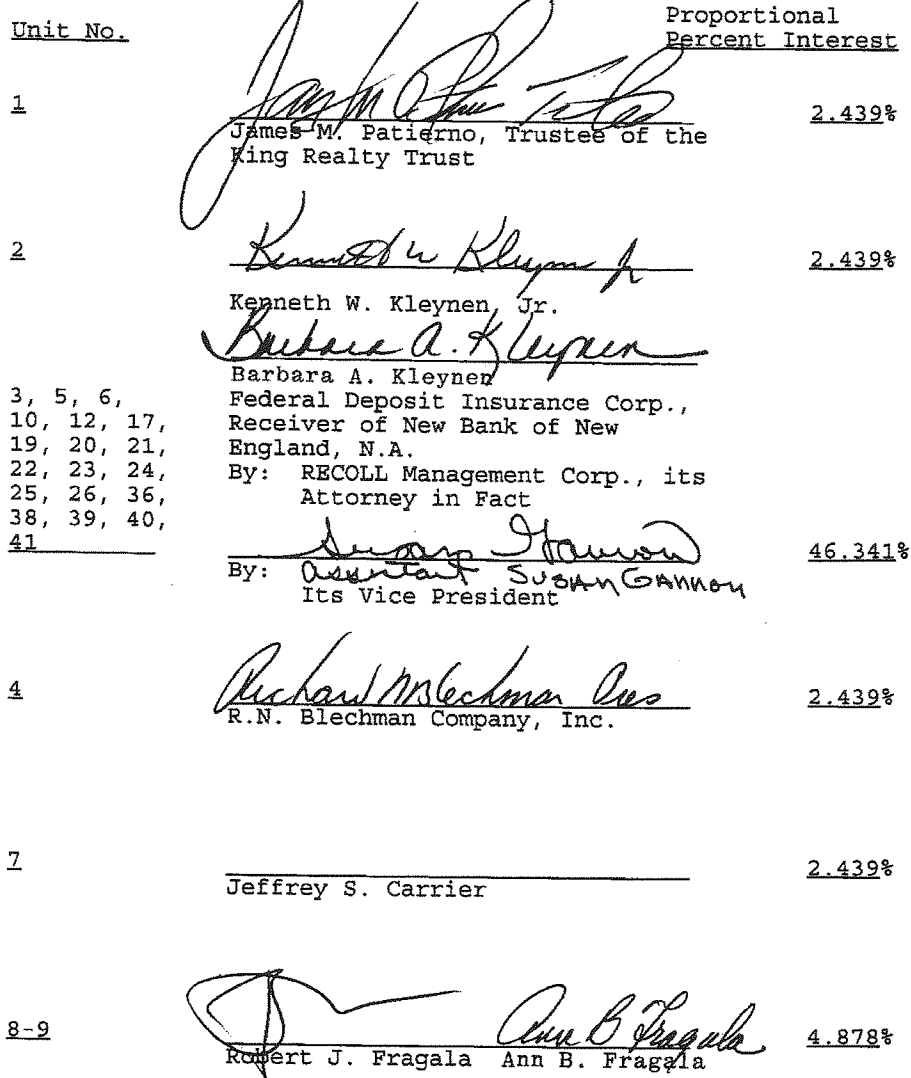 Unit No.
Proportional
Percent Interest
1
2.439%
James M. Patierno, Trustee of the
King Realty Trust
2
Kenneth W Kleynen Jr
2.439%
Kenneth W. Kleynen, Jr.
Barbara A. Kleynen
Barbara A. Kleynen
3, 5, 6,
10, 12, 17,
19, 20, 21,
22, 23, 24,
25, 26, 36,
38, 39, 40,
41
Federal Deposit Insurance Corp.,
Receiver of New Bank of New
England, N.A.
By: RECOLL Management Corp., its
Attorney in Fact
Susan Gannon
46.341%
By: Assistant SUSAN GANNON
Its Vice President
4
Richard N Blechman Pres
2.439%
R.N. Blechman Company, Inc.
7
2.439%
Jeffrey S. Carrier
8-9
Ann B Fragala
4.878%
Robert J. Fragala Ann B. Fragala